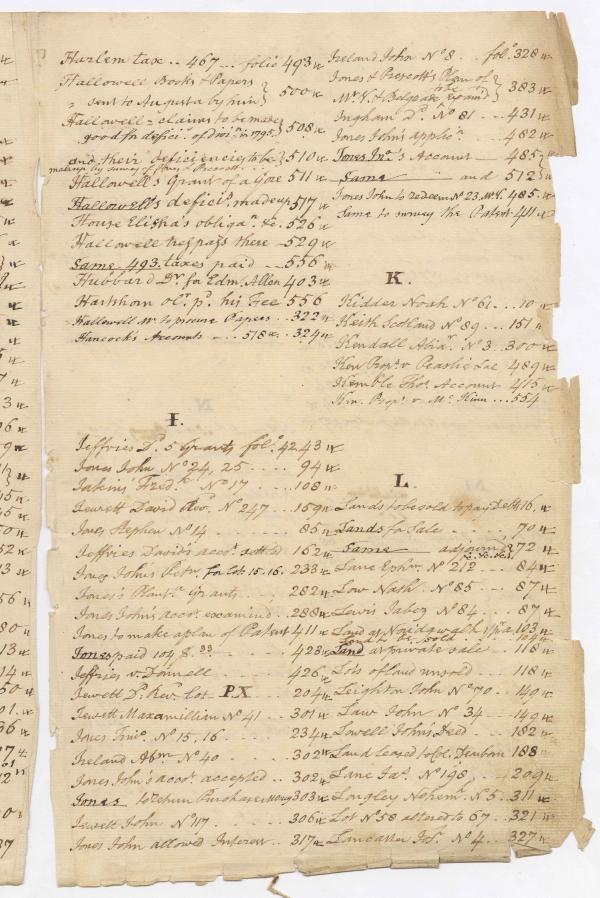 Harlem tax .. 467 ... folio 493
Hallowell Books & Papers
sent to Augusta by him } 500
Hallowell claims to be made
good for defici.y of Divi.n in 1795 } 508
and their deficiencies to be } 510
made up by survey of Jones & Prescott
Hallowell's Grant of a Gore 511
Hallowell's defici.y made up 517
House Elisha's obliga.n &c. 526
Hallowell trespass there 529
Same 493. taxes paid 556
Hubbard D.r for Edm. Allen 403
Harthorn pd. his Fee 556
Hallowell Mr. to procure Papers 322
Hancock's Accounts 518 .. 324
I.
Jeffries D. 5 Grants fol.o 42.43
Jones John No 24, 25 .... 94
Jakins Fred.k No 17 .... 108
Jewett David No. 247 .. 159
Jones Stephen No 14 85
Jeffries David's acco.t settled 162
Jones John's Petn. for Lots 15.16. 233
Jones's Plant.n Grants 282
Jones John's acco.t examined 288
Jones to make a plan of Patent 411
Jones paid 104 8.33 423
Jeffries v. Donnell 426
Jewett D. Rev. Lot PX 204
Jewett Maxamillian No 41 .. 301
Jones No 15.16 234
Ireland Abm. No 40 302
Jones John's acco.t accepted .. 302
Jones to return Purchase Money 303
Jewett John No 117 306
Jones John allowed Interest .. 317
Ireland John No 8 . fol.o 328
Jones & Prescott's Plan of
Mr. V. & Belgrade } 383
Ingham D. No 81 ... 431
Jones John's applic.n 482
Jones Jn.o's Account 485
Same and 512
Jones John to redeem No 23. Mt. V. 485
Same to survey the Patent 411
K.
Kidder Noah No 61 ... 10
Keith Scotland No 89 ... 151
Kendall Abia. No 3 .. 300
Ken. Prop.s v Peaslie 489
Kemble Tho.s Account 415
Ken. Prop.s v Mc. Kinn ... 554
L.
Lands to be sold to pay Debts 16
Lands for Sale 70
Same adjoining 72
Lane Eph.m No 212 .. 84
Low Nath. No 85 .. 87
Lewis Jabez No 84 .. 87
Land at Norridgwalk 103
Land to be sold
Land at private sale 118
Lots of land unsold ... 118
Leighton John No 70 . 149
Law John No 34 ... 149
Lowell John's Deed .. 182
Land leased to Col. Dearborn 188
Lane Ja.s No 198 .. 209
Longley Nehem. No 5 .. 311
Lot No 58 altered to 67 .. 321
Lancaster No 4 .. 327